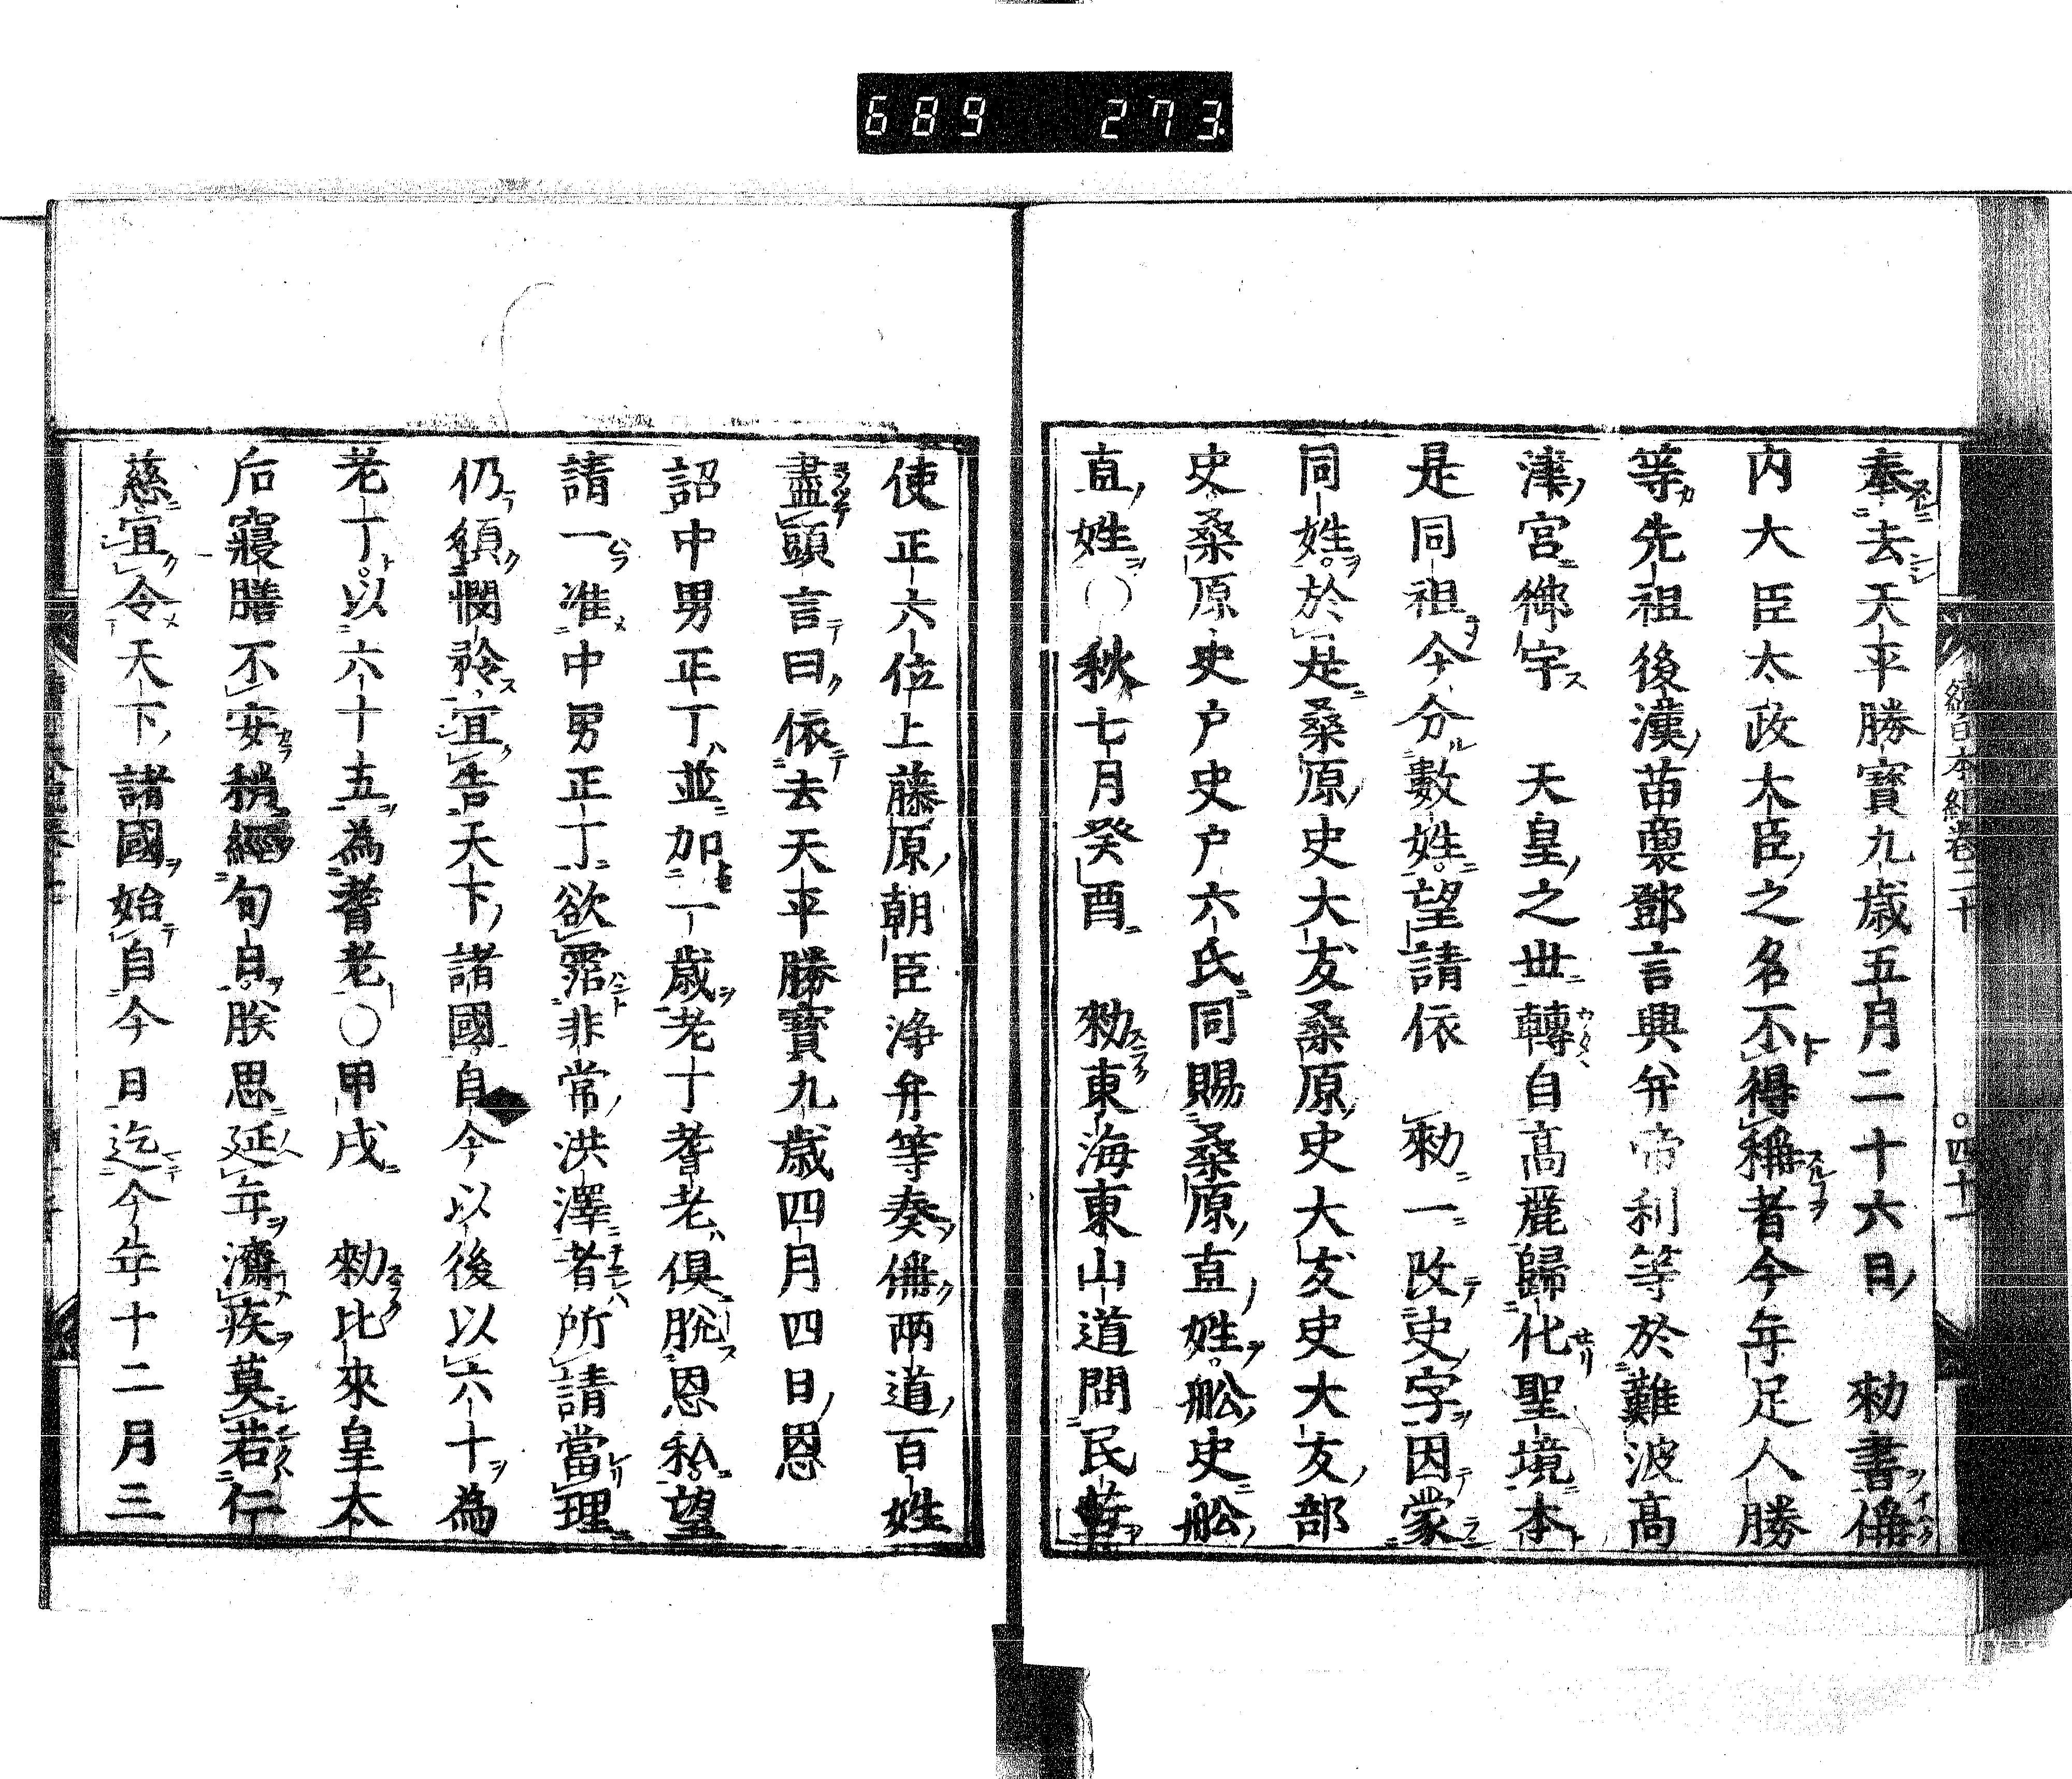 689 273
續日本紀卷二十 ○四十一
奉去天平勝寶九歳五月二十六日 勅書偁
内大臣太政大臣之名不得稱者今年足人勝
等先祖後漢苗裔鄧言興并帝利等於難波高
津宮御宇 天皇之世轉自高麗歸化聖境本
是同祖今分數姓望請依 勅一改史字因蒙
同姓於是桑原史大友桑原史大友史大友部
史桑原史戸史戸六氏同賜桑原直姓舩史舩
直姓○秋七月癸酉 勅東海東山道問民苦
使正六位上藤原朝臣浄弁等奏偁兩道百姓
盡頭言曰依去天平勝寶九歳四月四日恩
詔中男正丁並加一歳老丁耆老俱脱恩私望
請一准中男正丁欲霑非常洪澤者所請當理
仍須憫矜宜告天下諸國自今以後以六十為
老丁以六十五為耆老○甲戌 勅比來皇太
后寢膳不安稍經旬日朕思延年濟疾莫若仁
慈宜令天下諸國始自今日迄今年十二月三